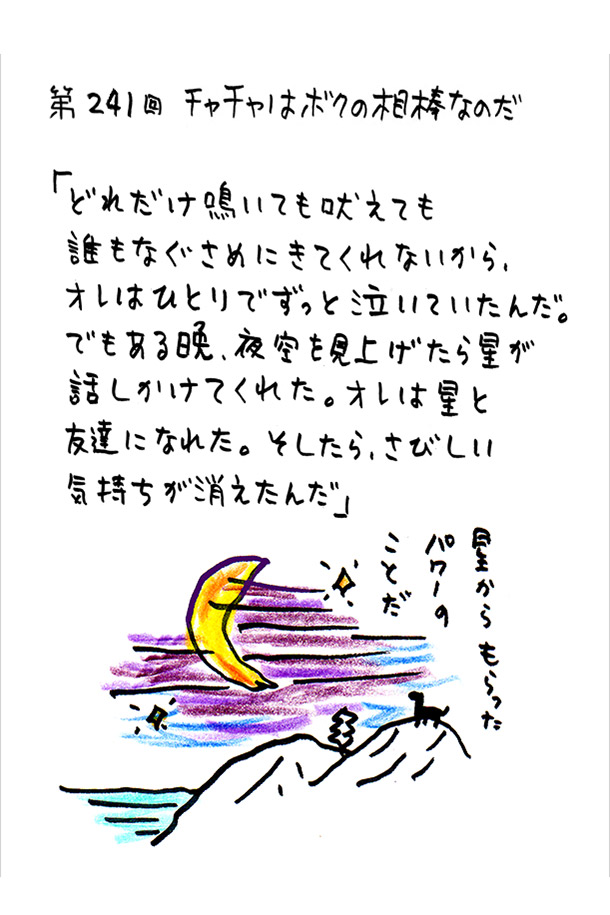 第241回 チャチャはボクの相棒なのだ
「どれだけ鳴いても吠えても
誰もなぐさめにきてくれないから、
オレはひとりでずっと泣いていたんだ。
でもある晩、夜空を見上げたら星が
話しかけてくれた。オレは星と
友達になれた。そしたら、さびしい
気持ちが消えたんだ」
星からもらった
パワーの
ことだ